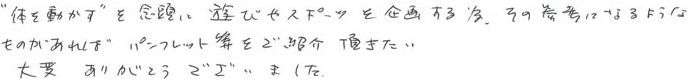 "体を動かす"を念頭に遊びやスポーツを企画する為、その参考になるような
ものがあれば パンフレット等をご紹介頂きたい
大変 ありがとうございました。